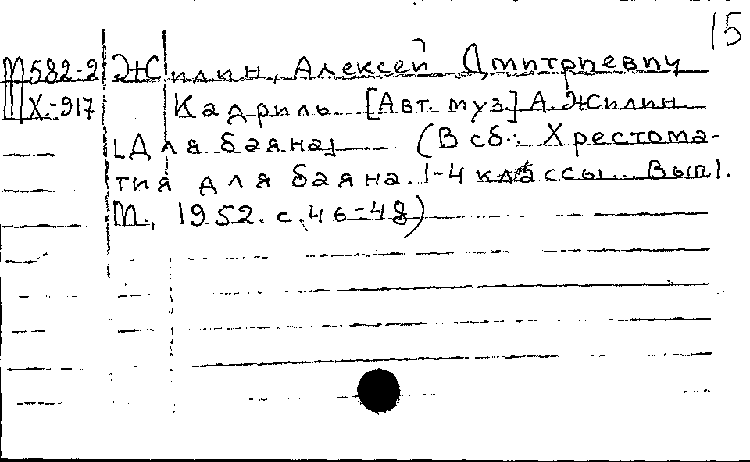 15
М582-2 Жилин, Алексей Дмитриевич
Х-917 Кадриль. [Авт. муз.] А. Жилин
[Для баяна] (В сб.: Хрестома-
тия для баяна. 1-4 классы. Вып 1.
М., 1952. с. 46-48)